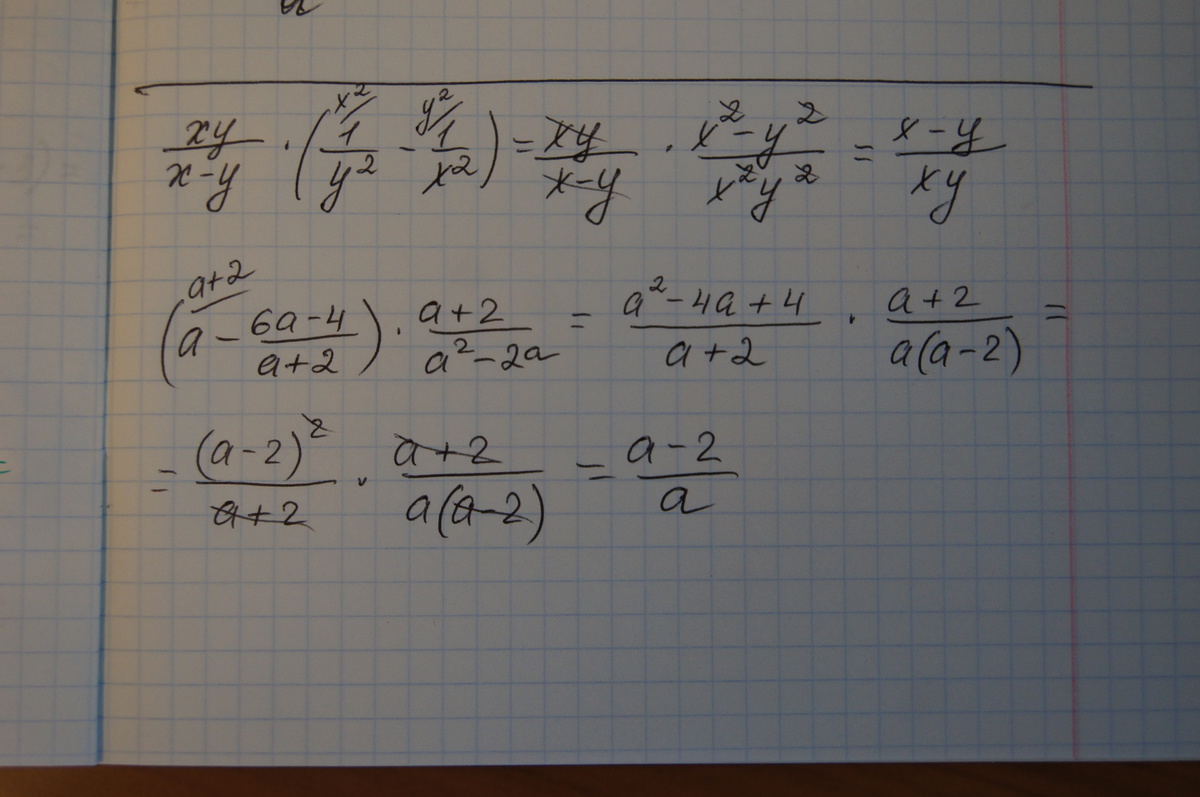 a
xy/(x-y) · (x²/ 1/y² - y²/ 1/x²) = xy/(x-y) · (x²-y²)/(x²y²) = (x-y)/(xy)
(a+2/ a - (6a-4)/(a+2)) · (a+2)/(a²-2a) = (a²-4a+4)/(a+2) · (a+2)/(a(a-2)) =
= (a-2)²/(a+2) · (a+2)/(a(a-2)) = (a-2)/a